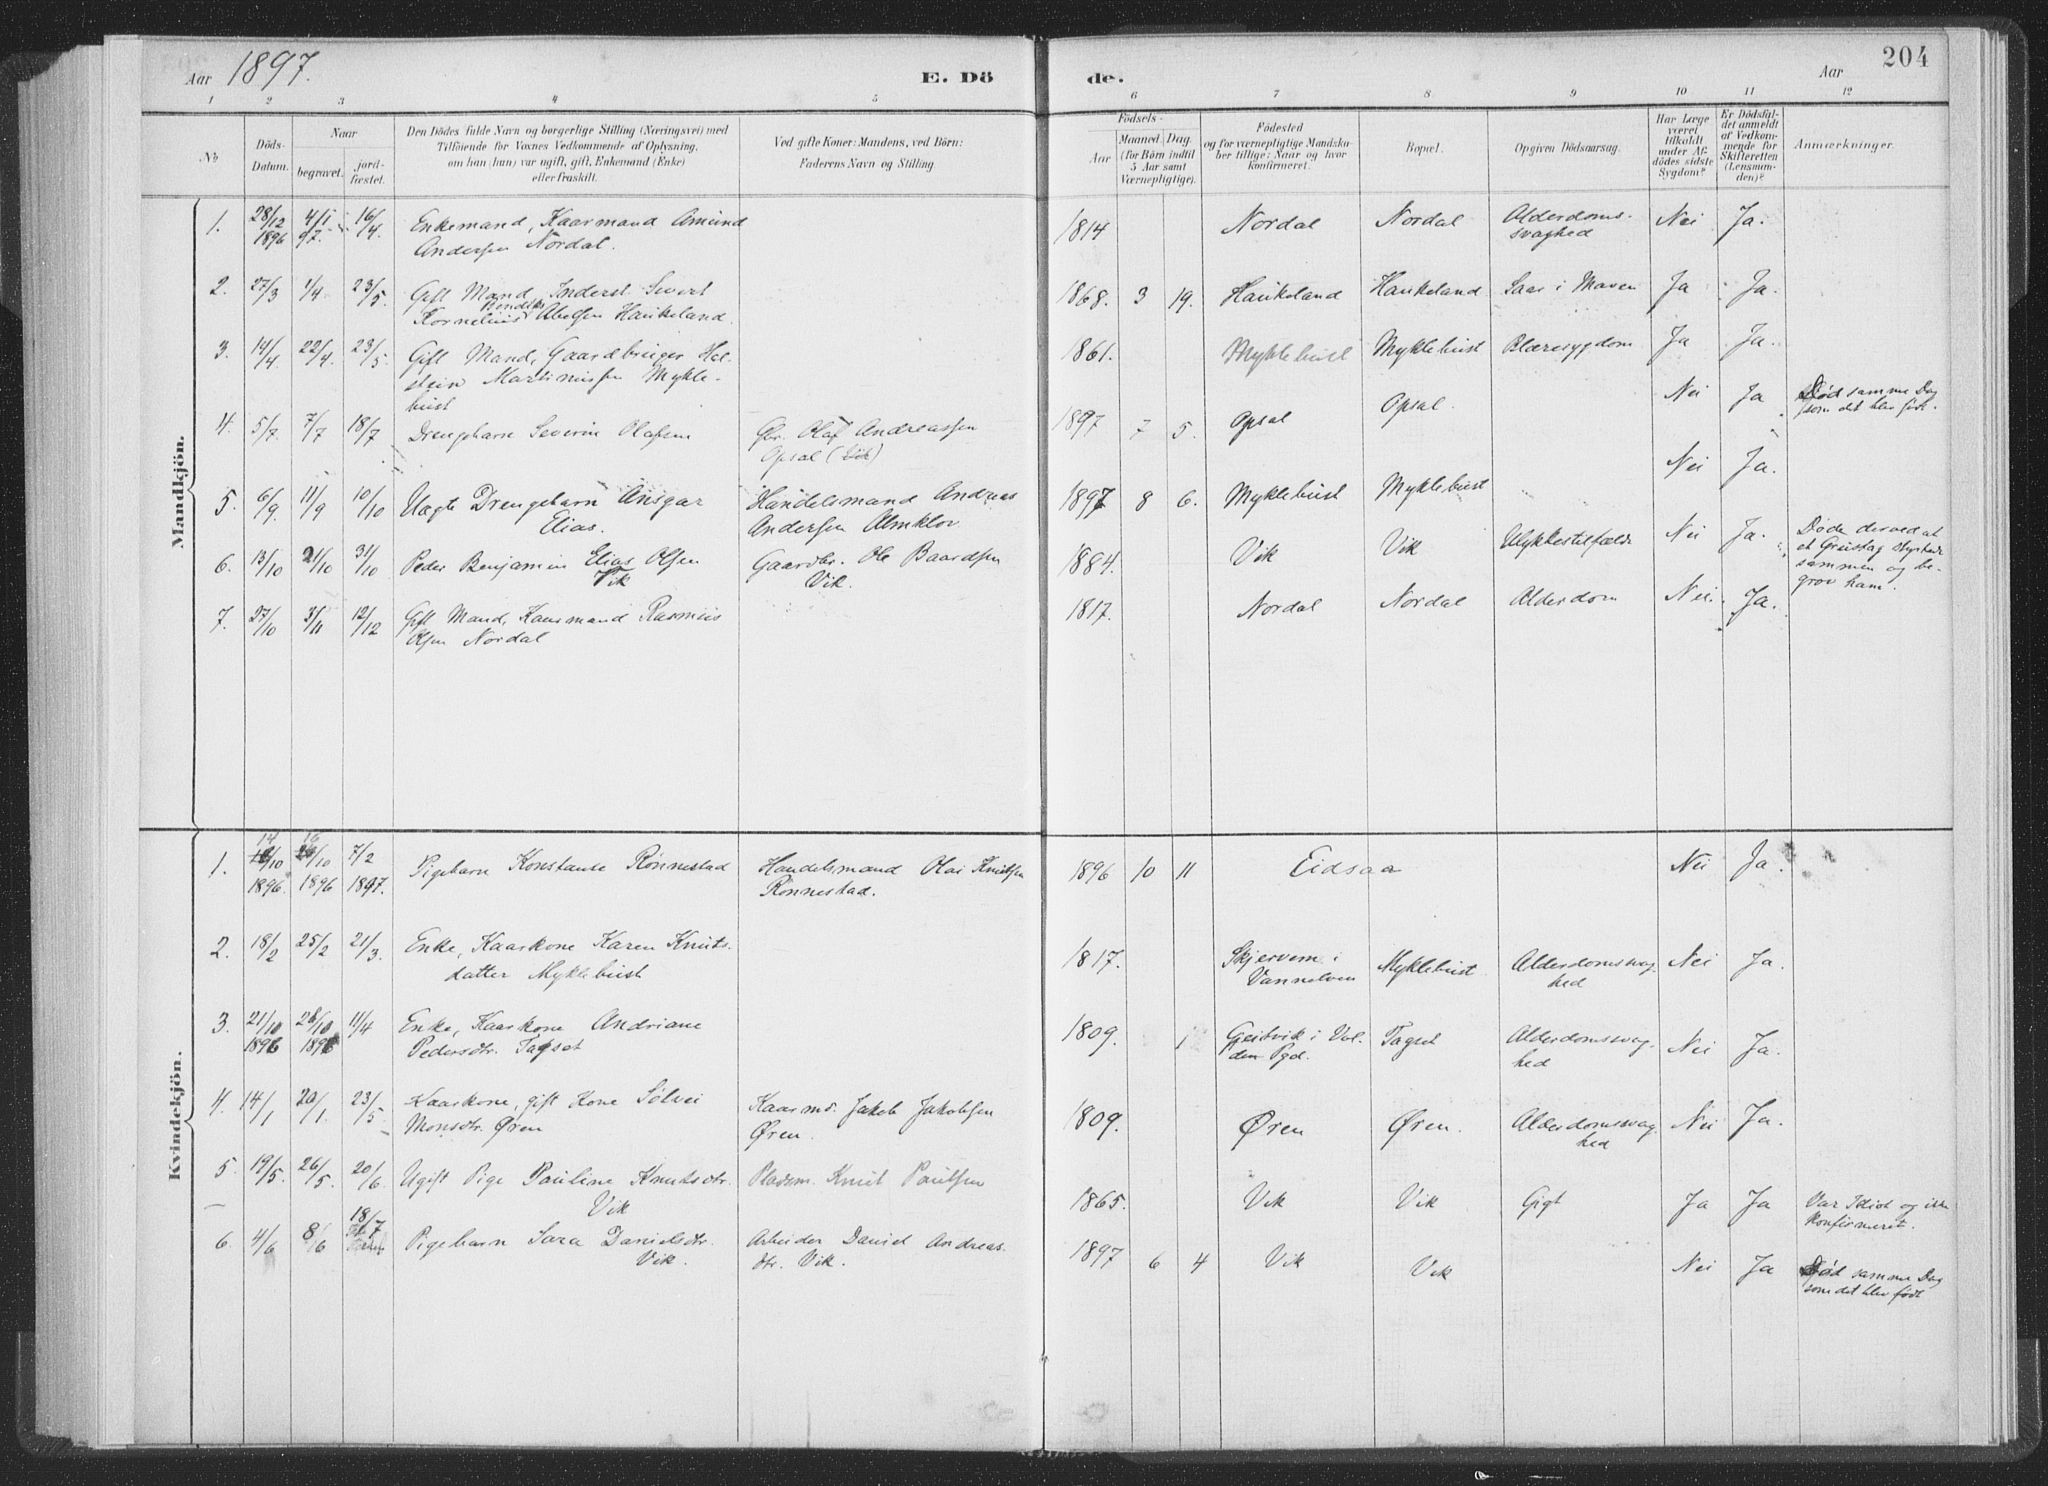 Aar 1897.
E. Dö
de.
Aar
204
1 2 3 4 5 6 7 8 9 10 11 12
No
Döds-Datum.
Naar
begravet.
jord-fæstet.
Den Dödes fulde Navn og borgerlige Stilling (Næringsvei) med
Tilföiende for Voxnes Vedkommende af Oplysning,
om han (hun) var ugift, gift, Enkemand (Enke)
eller fraskilt.
Ved gifte Koner: Mandens, ved Börn:
Faderens Navn og Stilling
Födsels-
Aar
Maaned Dag
(for Börn indtil
5 Aar samt
Værnepligtige).
Födested
og for værnepligtige Mandska-
ber tillige: Naar og hvor
konfirmeret.
Bopæl.
Opgiven Dödsaarsag.
Har Læge
været
tilkaldt
under Af-
dödes sidste
Sygdom?
Er Dödsfal-
det anmeldt
af Vedkom-
mende for
Skifteretten
(Lensman-
den)?
Anmærkninger.
Mandkjön.
1. 28/12 1896 4/1 97. 16/4. Enkemand, Kaarmand Amund
Andersen Nordal. 1814 Nordal Nordal Alderdoms-
svaghed Nei Ja.
2. 27/3 1/4 23/5. Gift Mand, Inderst Sivert
Kornelius Abelsen Haukeland. 1868. 3 19. Haukeland Haukeland Saar i Maven Ja Ja.
3. 14/4 22/4. 23/5. Gift Mand, Gaardbruger Hal-
stein Martinussen Mykle-
bust 1861. Myklebust Myklebust Blæresygdom Ja Ja.
4. 5/7. 7/7 18/7 Drengebarn Severin Olafsen Gbr. Olaf Andreassen
Opsal (Vik) 1897 7 5. Opsal Opsal. Nei Ja Død samme Dag
som det blev født.
5. 6/9. 11/9 10/10 Uægte Drengebarn Ansgar
Elias. Handelsmand Andreas
Andersen Almklov 1897 8 6. Myklebust Myklebust Nei Ja.
6. 13/10 21/10 31/10 Peder Benjamin Elias Olsen
Vik Gaardbr. Ole Baardsen
Vik. 1884. Vik Vik Ulykkestilfælde Nei Ja. Døde derved at
et Grustag styrtede
sammen og be-
grov ham.
7. 27/10 3/11 12/12 Gift Mand, Kaarmand Rasmus
Olsen Nordal 1817. Nordal Nordal Alderdom Nei. Ja.
Kvindekjön.
1. 14/10 1896. 16/10 1896 7/2 1897. Pigebarn Konstanse Rønnestad Handelsmand Olai Knutsen
Rønnestad. 1896 10 11 Eidsaa Nei Ja.
2. 18/2 25/2 21/3. Enke, Kaarkone Karen Knuts-
datter Myklebust 1817. Skjervem i
Vannelven Myklebust Alderdomssvag-
hed Nei Ja.
3. 21/10 1896 28/10 1896 11/4 Enke, Kaarkone Andriane
Pedersdtr. Tagset 1809. 1 Geitvik i Vol-
den Pgd. Tagset Alderdomssvag-
hed Nei Ja.
4. 14/1 20/1. 23/5 Kaarkone, gift Kone Sølvei
Monsdtr. Øren Kaarmd. Jakob Jakobsen
Øren. 1809. Øren Øren. Alderdomssvag-
hed Nei Ja.
5. 19/5. 26/5. 20/6 Ugift Pige Pauline Knutsdtr.
Vik Pladsm. Knut Paulsen 1865. Vik Vik Gigt Ja Ja Var Idiot og ikke
konfirmeret.
6. 4/6 8/6 18/7 Pigebarn Sara Danielsdtr.
Vik. Arbeider Daniel Andreas-
dtr. Vik. 1897 6 4 Vik Vik Nei Ja Død samme Dag
som det blev født